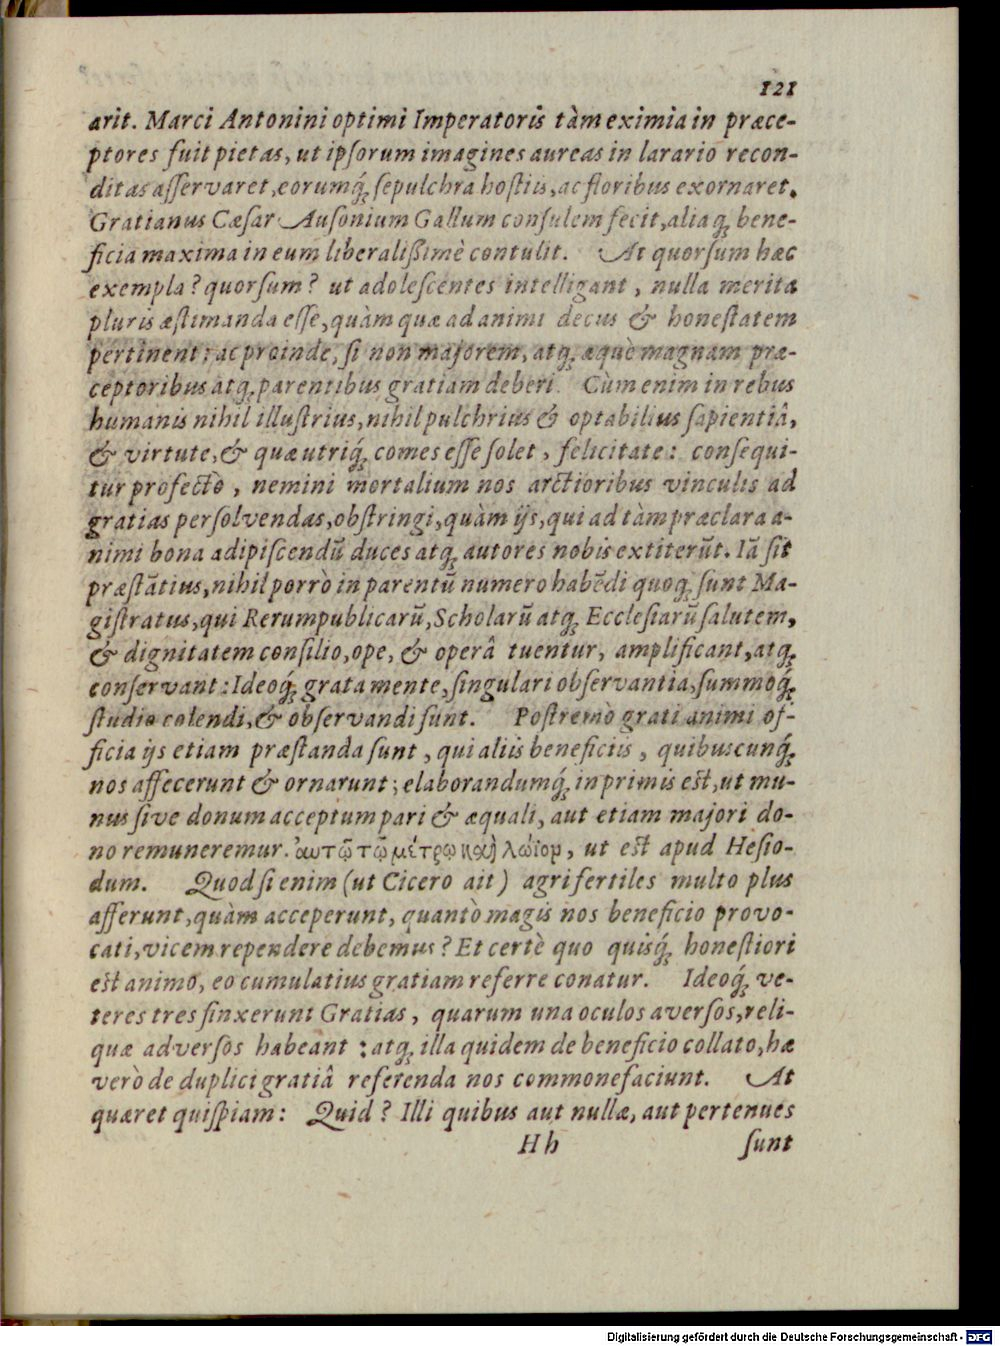 121
arit. Marci Antonini optimi Imperatoris tàm eximia in præce-
ptores fuit pietas, ut ipſorum imagines aureas in larario recon-
ditas aſſervaret, eorumq́; ſepulchra hoſtiis, ac floribus exornaret.
Gratianus Cæſar Auſonium Gallum conſulem fecit, aliaq; bene-
ficia maxima in eum liberalißimè contulit. At quorſum hæc
exempla? quorſum? ut adoleſcentes intelligant, nulla merita
pluris æſtimanda eſſe, quàm quæ ad animi decus & honeſtatem
pertinent: ac proinde, ſi non majorem, atq; æquè magnam præ-
ceptoribus atq; parentibus gratiam deberi. Cùm enim in rebus
humanis nihil illuſtrius, nihil pulchrius & optabilius ſapientiâ,
& virtute, & quæ utriq́; comes eſſe ſolet, felicitate: conſequi-
tur profectò, nemini mortalium nos arctioribus vinculis ad
gratias perſolvendas, obſtringi, quàm ijs, qui ad tàm præclara a-
nimi bona adipiſcendũ duces atq; autores nobis extiterũt. Iã ſit
præſtãtius, nihil porrò in parentũ numero habẽdi quoq; ſunt Ma-
giſtratus, qui Rerumpublicarũ, Scholarũ atq; Eccleſiarũ ſalutem,
& dignitatem conſilio, ope, & operâ tuentur, amplificant, atq;
conſervant: Ideoq́; grata mente, ſingulari obſervantia, ſummoq́;
ſtudio colendi, & obſervandi ſunt. Poſtremò grati animi of-
ficia ijs etiam præſtanda ſunt, qui aliis beneficiis, quibuscunq́;
nos affecerunt & ornarunt; elaborandumq́; inprimis eſt, ut mu-
nus ſive donum acceptum pari & æquali, aut etiam majori do-
no remuneremur. ἀυτῷ τῷ μέτρῳ καὶ λώϊον, ut eſt apud Heſio-
dum. Quod ſi enim (ut Cicero ait) agri fertiles multo plus
afferunt, quàm acceperunt, quantò magis nos beneficio provo-
cati, vicem rependere debemus? Et certè quo quisq́; honeſtiori
eſt animo, eo cumulatius gratiam referre conatur. Ideoq́; ve-
teres tres finxerunt Gratias, quarum una oculos averſos, reli-
quæ adverſos habeant: atq; illa quidem de beneficio collato, hæ
verò de duplici gratiâ referenda nos commonefaciunt. At
quæret quiſpiam: Quid? Illi quibus aut nullæ, aut pertenues
Hh ſunt
Digitalisierung gefördert durch die Deutsche Forschungsgemeinschaft - DFG